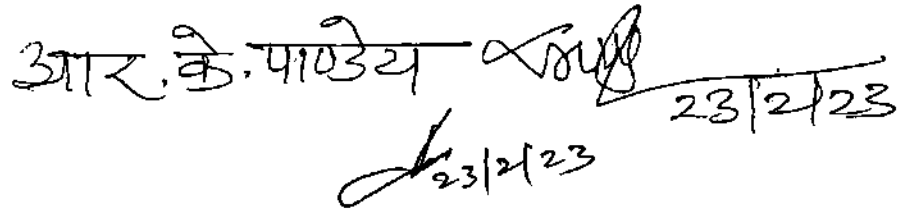 आर. के. पाण्डेय 23/2/23
23/2/23